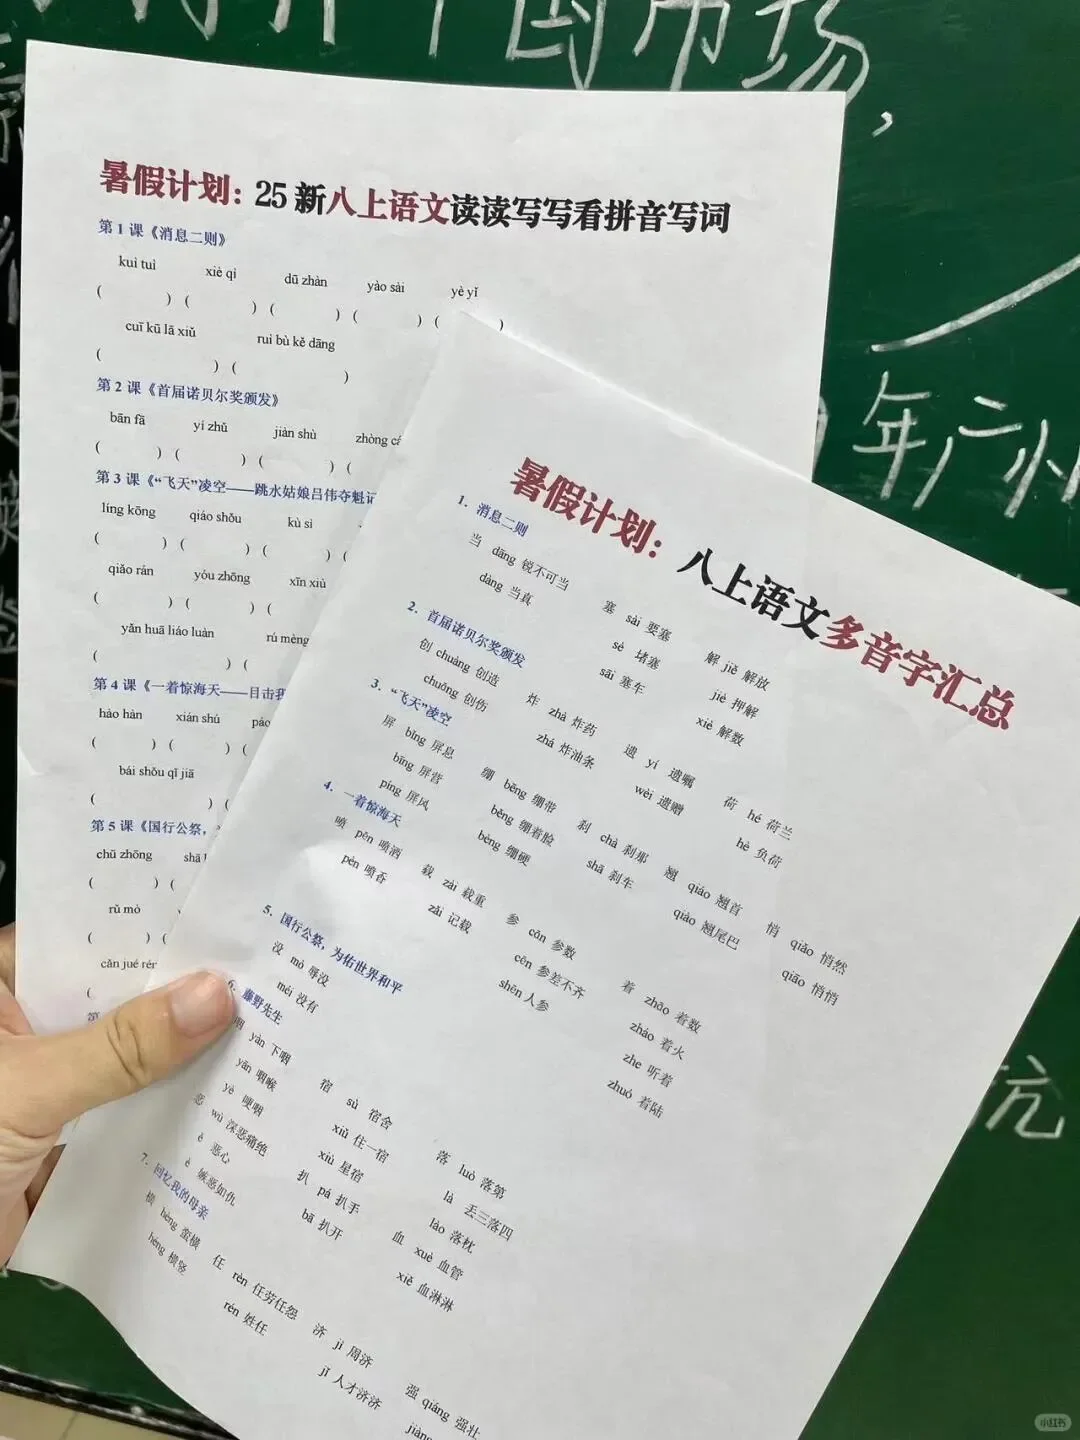 中国市场,
年广州
抗
暑假计划：25 新八上语文读读写写看拼音写词
第 1 课《消息二则》
kuì tuì xiè qì dū zhàn yào sài yè yǐ
( ) ( ) ( ) ( ) ( )
cuī kū lā xiǔ ruì bù kě dāng
( ) ( )
第 2 课《首届诺贝尔奖颁发》
bān fā yí zhǔ jiàn shù zhòng cá
( ) ( ) ( ) (
第 3 课《“飞天”凌空——跳水姑娘吕伟夺魁记
líng kōng qiáo shǒu kù sì
( ) ( ) ( ) (
qiǎo rán yóu zhōng xīn xiù
( ) ( ) (
yǎn huā liáo luàn rú mèng
( ) (
第 4 课《一着惊海天——目击我
hào hàn xián shú páo
( ) ( ) (
bái shǒu qǐ jiā
( ) (
第 5 课《国行公祭，
chū zhōng shā l
( ) (
rǔ mò
( ) (
cǎn jué rén
(
第
暑假计划：八上语文多音字汇总
1. 消息二则
当 dāng 锐不可当 塞 sài 要塞 解 jiě 解放
dàng 当真 sè 堵塞 jiè 押解
sāi 塞车 xiè 解数
2. 首届诺贝尔奖颁发
创 chuàng 创造 炸 zhà 炸药 遗 yí 遗嘱 荷 hé 荷兰
chuāng 创伤 zhá 炸油条 wèi 遗赠 hè 负荷
3. “飞天”凌空
屏 bǐng 屏息 绷 bēng 绷带 刹 chà 刹那 翘 qiáo 翘首 悄 qiǎo 悄然
bīng 屏营 běng 绷着脸 shā 刹车 qiào 翘尾巴 qiāo 悄悄
píng 屏风 bèng 绷硬
4. 一着惊海天
喷 pēn 喷洒 载 zài 载重 参 cān 参数 着 zhāo 着数
pèn 喷香 zǎi 记载 cēn 参差不齐 zháo 着火
shēn 人参 zhe 听着
zhuó 着陆
5. 国行公祭，为佑世界和平
没 mò 辱没
méi 没有
6. 藤野先生
咽 yàn 下咽 宿 sù 宿舍 落 luò 落第
yān 咽喉 xiǔ 住一宿 là 丢三落四
yè 哽咽 xiù 星宿 lào 落枕
恶 wù 深恶痛绝 扒 pá 扒手 血 xuè 血管
ě 恶心 bā 扒开 xiě 血淋淋
è 嫉恶如仇
7. 回忆我的母亲
横 hèng 蛮横 任 rèn 任劳任怨 济 jì 周济 强 qiáng 强壮
héng 横竖 rén 姓任 jǐ 人才济济 jiàng
小红书